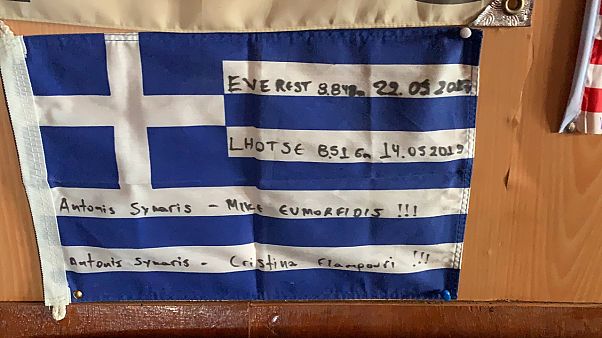 EVEREST 8.848m 22.05 2019
LHOTSE 8.516m 14.05 2019
Antonis Syкaris - MIKE EUMORFIDIS !!!
Antonis Sykaris - Cristina Flampouri !!!